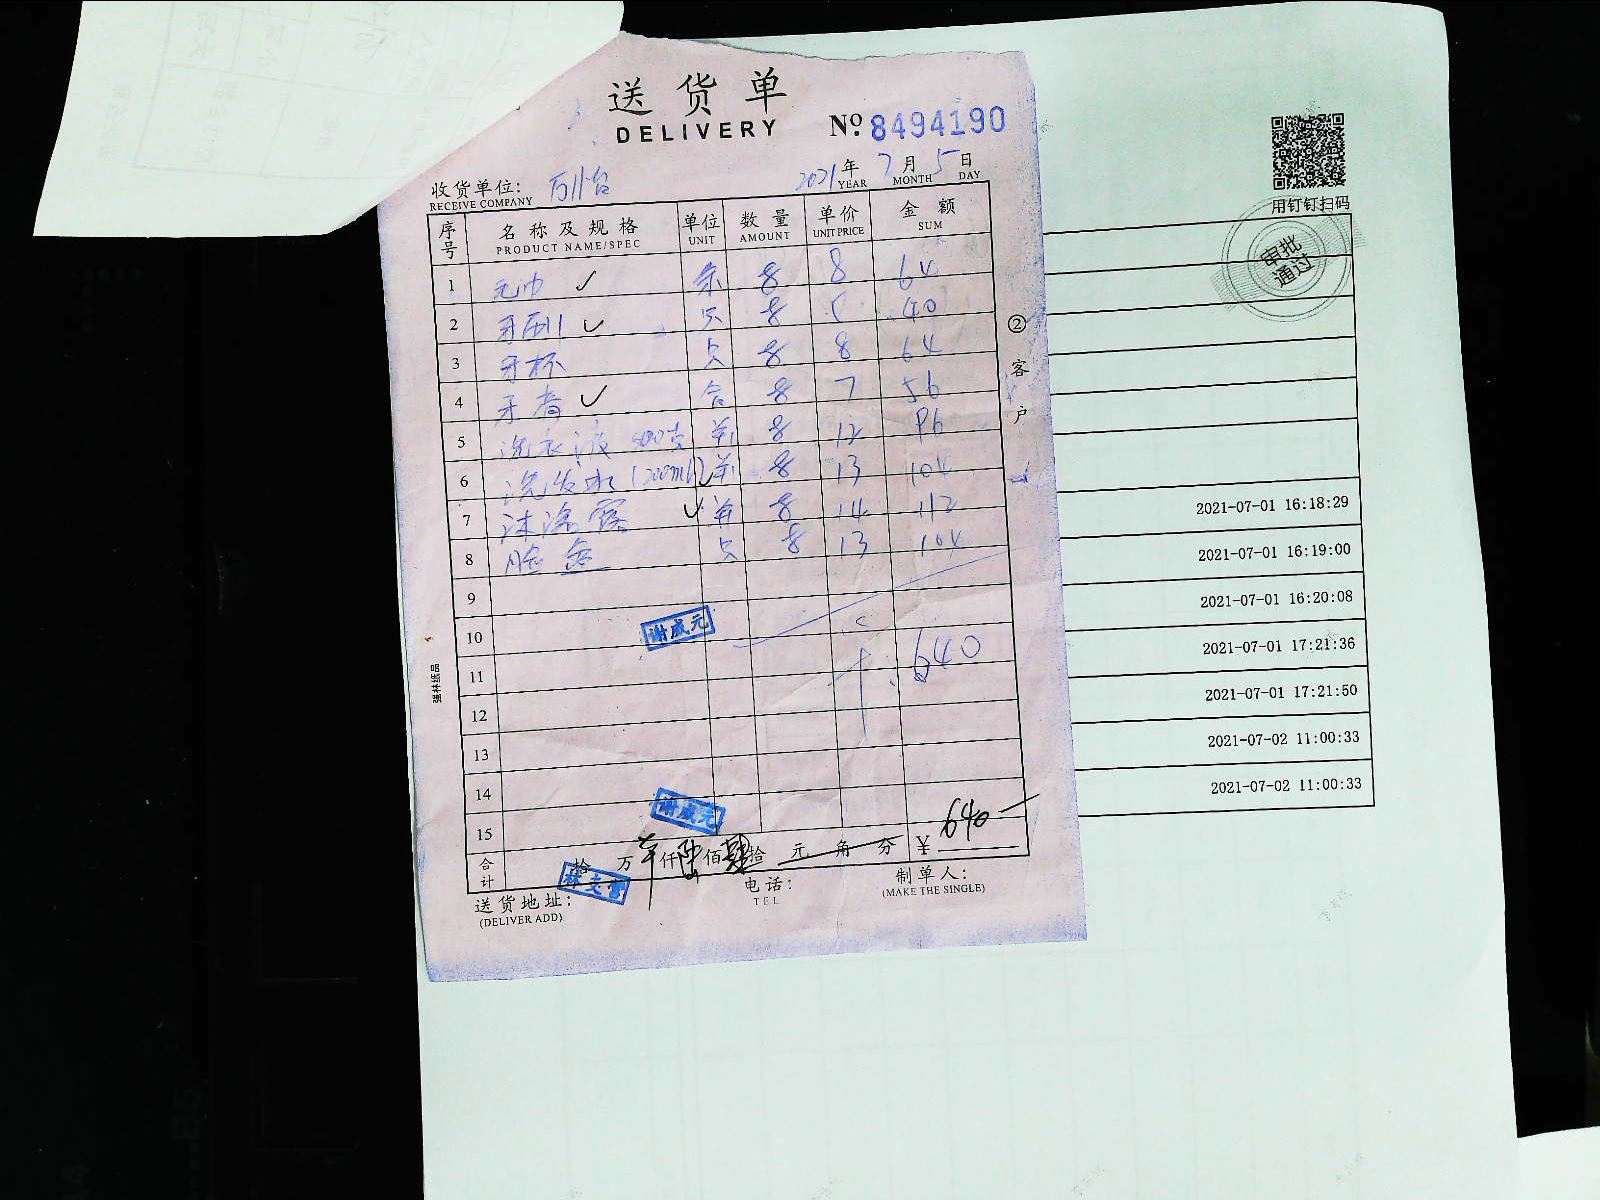 送货单
DELIVERY
№ 8494190
收货单位:
RECEIVE COMPANY
2021 年 YEAR 7 月 MONTH 5 日 DAY
序号 名称及规格 PRODUCT NAME/SPEC 单位 UNIT 数量 AMOUNT 单价 UNIT PRICE 金额 SUM
1 毛巾 ✓ 条 8 8 64
2 牙刷 ✓ 只 8 5 40
3 牙杯 只 8 8 64
4 牙膏 ✓ 合 8 7 56
5 洗衣液 500克 并 8 12 96
6 洗发水 1200ml 并 8 13 104
7 沐浴露 ✓ 并 8 14 112
8 脸盆 只 8 13 104
9
10 谢成元
11 640
12
13
14
15 谢成元
合计 拾 万 仟 陆 佰 肆 拾 元 角 分 ¥ 640
送货地址:
(DELIVER ADD)
电话:
TEL
制单人:
(MAKE THE SINGLE)
②客户
强林纸品
用钉钉扫码
审批
通过
2021-07-01 16:18:29
2021-07-01 16:19:00
2021-07-01 16:20:08
2021-07-01 17:21:36
2021-07-01 17:21:50
2021-07-02 11:00:33
2021-07-02 11:00:33